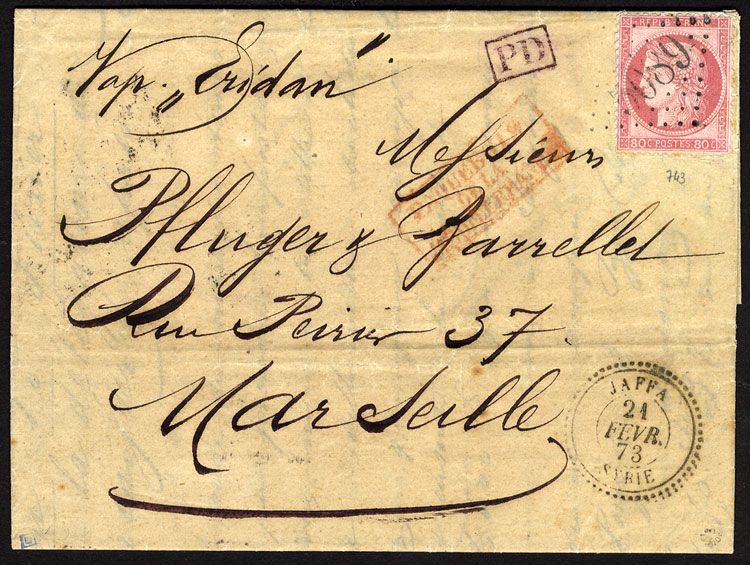 Vap. „Eridan".
PD
REPUB FRANC
80C POSTES 80C
743
Messieurs
Pfluger & Barrellet
Rue 37.
Marseille
JAFFA
21
FEVR.
73
SYRIE